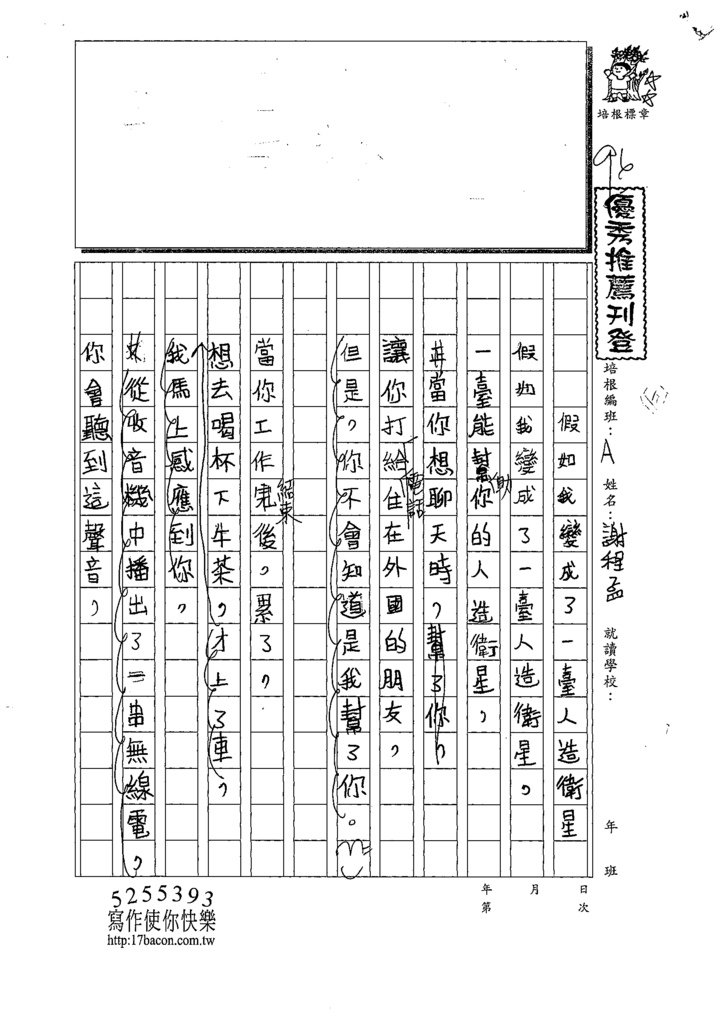 培根標章
96
優秀推薦刊登
培根編班：A 姓名：謝程孟 就讀學校： 年 班
假如我變成了一臺人造衛星
假如我變成了一臺人造衛星，
一臺能幫助你的人造衛星，
當你想聊天時，幫了你，
讓你打給電話住在外國的朋友，
但是，你不會知道是我幫了你。
當你工作完結束後，累了，
想去喝杯下午茶，才上了車，
我馬上感應到你，
從收音機中播出了一串無線電，
你會聽到這聲音，
年 月 日
第 次
5255393
寫作使你快樂
http:17bacon.com.tw